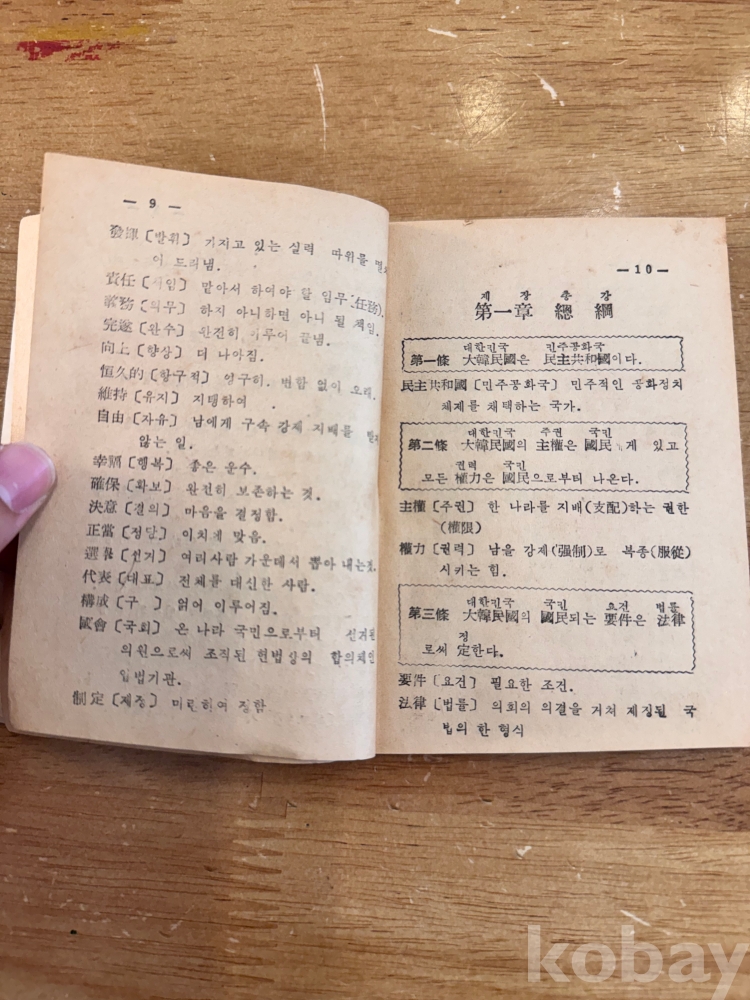 — 9 —
發揮〔발휘〕 가지고 있는 실력 따위를
이 드러냄.
責任〔책임〕 맡아서 하여야 할 임무(任務).
義務〔의무〕 하지 아니하면 아니 될 책임.
完遂〔완수〕 완전히 이루어 끝냄.
向上〔향상〕 더 나아짐.
恒久的〔항구적〕 영구히. 변함 없이 오래.
維持〔유지〕 지탱하여
自由〔자유〕 남에게 구속 강제 지배를 받지
않는 일.
幸福〔행복〕 좋은 운수.
確保〔확보〕 완전히 보존하는 것.
決意〔결의〕 마음을 결정함.
正當〔정당〕 이치게 맞음.
選擧〔선거〕 여러사람 가운데서 뽑아 내는것.
代表〔대표〕 전체를 대신한 사람.
構成〔구 〕 얽어 이루어짐.
國會〔국회〕 온 나라 국민으로부터 선거된
의원으로써 조직된 헌법상의 합의체인
입법기관.
制定〔제정〕 마련하여 정함
—10—
제 장 총 강
第一章 總 綱
대한민국 민주공화국
第一條 大韓民國은 民主共和國이다.
民主共和國〔민주공화국〕 민주적인 공화정치
체제를 채택하는 국가.
대한민국 주권 국민
第二條 大韓民國의 主權은 國民 게 있고
권력 국민
모든 權力은 國民으로부터 나온다.
主權〔주권〕 한 나라를 지배(支配)하는 권한
(權限)
權力〔권력〕 남을 강제(强制)로 복종(服從)
시키는 힘.
대한민국 국민 요건 법률
第三條 大韓民國의 國民되는 要件은 法律
정
로써 定한다.
要件〔요건〕 필요한 조건.
法律〔법률〕 의회의 의결을 거쳐 제정된 국
법의 한 형식
kobay